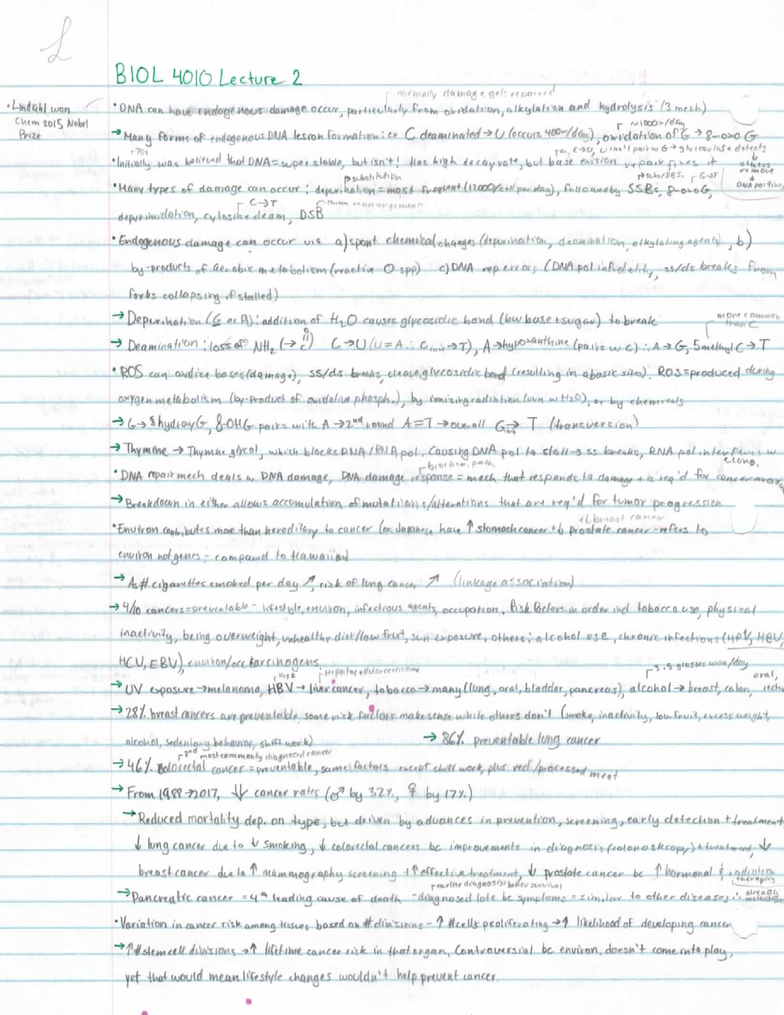 L
BIOL 4010 Lecture 2
normally damage gets repaired
• Lindahl won
Chem 2015 Nobel
Prize
• DNA can have endogenous damage occur, particularly from oxidation, alkylation and hydrolysis (3 mech)
~1000/day
→ Many forms of endogenous DNA lesion formation: ex C deaminated → U (occurs 400x/day), oxidation of G → 8-oxo G
• Initially was believed that DNA = super stable, but isn't! Has high decay rate, but base excision repair fixes it
• Many types of damage can occur: depurination = most frequent (12000/cell per day), followed by SSBs, 8-oxoG,
C→T
depyrimidination, cytosine deam, DSB
• Endogenous damage can occur via a) spont chemical changes (depurination, deamination, alkylating agents), b)
by-products of aerobic metabolism (reactive O spp) c) DNA rep errors (DNA pol infidelity, ss/ds breaks from
forks collapsing if stalled)
more common than C
→ Depurination (G or A): addition of H₂O causes glycosidic bond (low base + sugar) to break
→ Deamination: loss of NH₂ (→ O) C→U (U=A ∴ C→T), A→hypoxanthine (pairs w C) ∴ A→G, 5methyl C→T
• ROS can oxidize bases (damage), ss/ds breaks, cleave glycosidic bond (resulting in abasic sites). ROS = produced during
oxygen metabolism (by-product of oxidative phosph.), by ionizing radiation (w H₂O), or by chemicals
→ G→8hydroxyG, 8-OHG pairs with A → 2nd round A=T → overall G → T (transversion)
→ Thymine → Thymine glycol, which blocks DNA/RNA pol, causing DNA pol to stall → ss breaks, RNA pol interferes w
elong.
biochem. path
• DNA repair mech deals w DNA damage, DNA damage response = mech that responds to damage + is req'd for cancer
→ Breakdown in either allows accumulation of mutations/alterations that are req'd for tumor progression
+↓ breast cancer
• Environ contributes more than hereditary to cancer (ex Japanese have ↑ stomach cancer + ↓ prostate cancer - refers to
environ not genes - compared to Hawaiian)
→ As # cigarettes smoked per day ↗, risk of lung cancer ↗ (linkage association)
→ 4/10 cancers = preventable - lifestyle, environ, infectious agents, occupation. Risk factors in order incl tobacco use, physical
inactivity, being overweight, unhealthy diet/low fruit, sun exposure, others: alcohol use, chronic infections (HPV, HBV,
HCV, EBV), environ/occ carcinogens.
Hep B
Hepatocellular carcinoma
3.5 glasses wine/day
oral,
→ UV exposure → melanoma, HBV → liver cancer, tobacco → many (lung, oral, bladder, pancreas), alcohol → breast, colon,
→ 28% breast cancers are preventable, some risk factors make sense while others don't (smoke, inactivity, low fruit, excess weight,
alcohol, sedentary behavior, shift work) → 86% preventable lung cancer
2nd most commonly diagnosed cancer
→ 46% colorectal cancer = preventable, same factors except shift work, plus red/processed meat
→ From 1988→2017, ↓ cancer rates (♂ by 32%, ♀ by 17%)
→ Reduced mortality dep. on type, but driven by advances in prevention, screening, early detection + treatment
↓ lung cancer due to ↓ smoking, ↓ colorectal cancers bc improvements in diagnosis (colonoskcopy) + treatment, ↓
breast cancer due to ↑ mammography screening + ↑ effective treatment, ↓ prostate cancer bc ↑ hormonal & radiation
therapies
earlier diagnosis = better survival
→ Pancreatic cancer = 4th leading cause of death - diagnosed late bc symptoms = similar to other diseases ∴ already
• Variation in cancer risk among tissues based on # divisions - ↑ # cells proliferating → ↑ likelihood of developing cancer
→ ↑ # stem cell divisions → ↑ lifetime cancer risk in that organ. Controversial bc environ. doesn't come into play,
yet that would mean lifestyle changes wouldn't help prevent cancer.